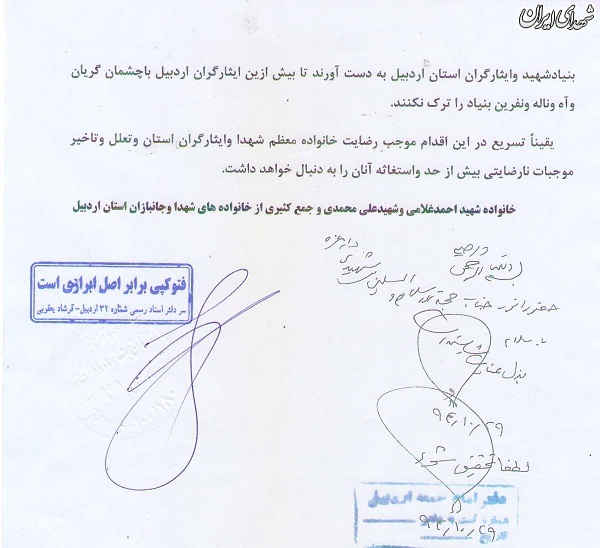 شهدای ایران
بنیادشهید وایثارگران استان اردبیل به دست آورند تا بیش ازین ایثارگران اردبیل باچشمان گریان
وآه وناله ونفرین بنیاد را ترک نکنند.
یقیناً تسریع در این اقدام موجب رضایت خانواده معظم شهدا وایثارگران استان وتعلل وتاخیر
موجبات نارضایتی بیش از حد واستغاثه آنان را به دنبال خواهد داشت.
خانواده شهید احمدغلامی وشهیدعلی محمدی و جمع کثیری از خانواده های شهدا وجانبازان استان اردبیل
فتوکپی برابر اصل ابرازی است
سر دفتر اسناد رسمی شماره ۳۲ اردبیل - فرشاد یعقوبی
با سلام
۹۴/۱۰/۲۹
لطفا تحقیق شود
دفتر امام جمعه اردبیل
تاریخ ۹۴/۱۰/۲۹